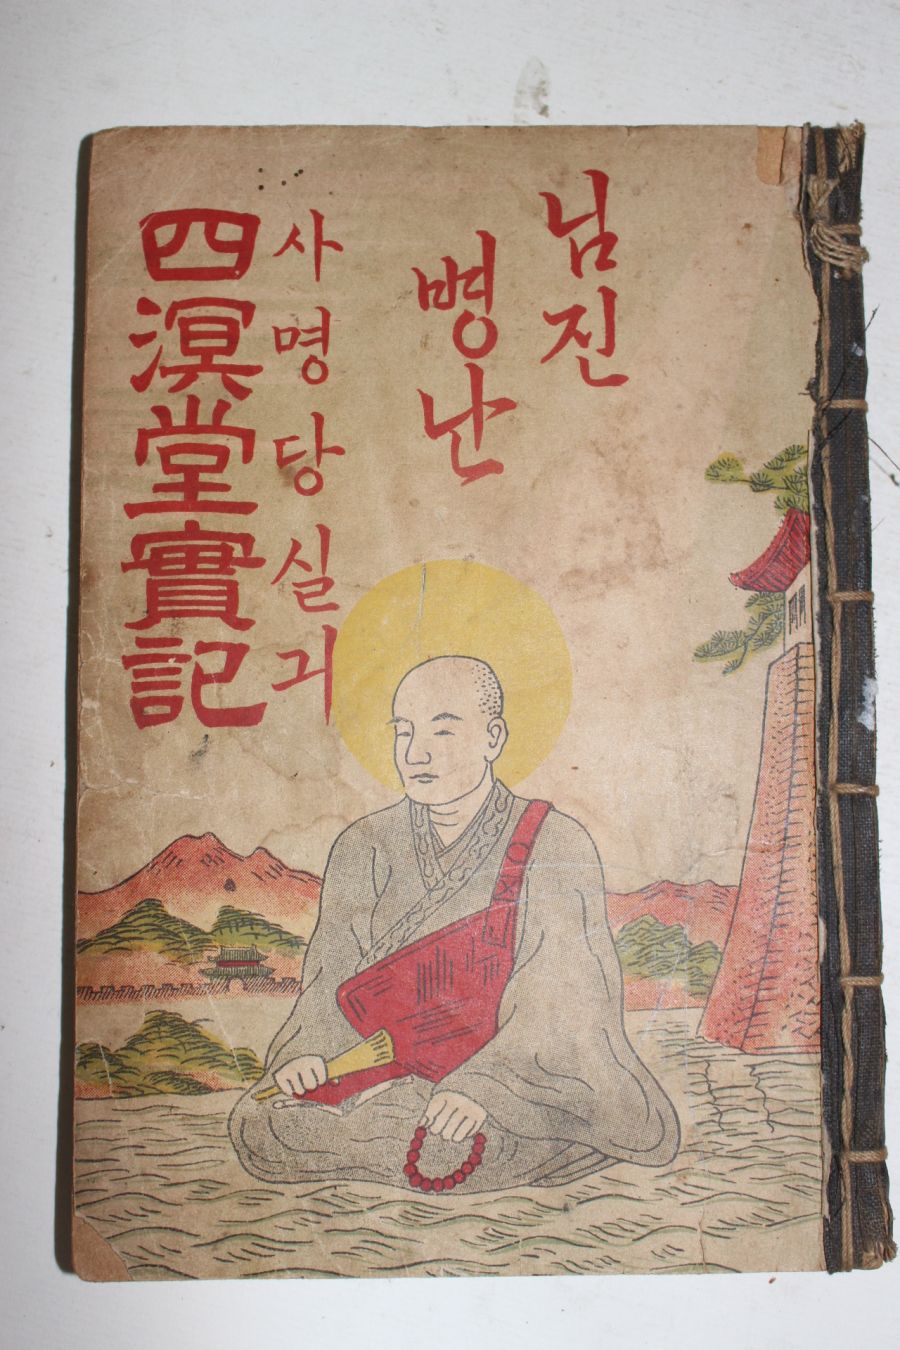 님진
병난
사명당실긔
四溟堂實記